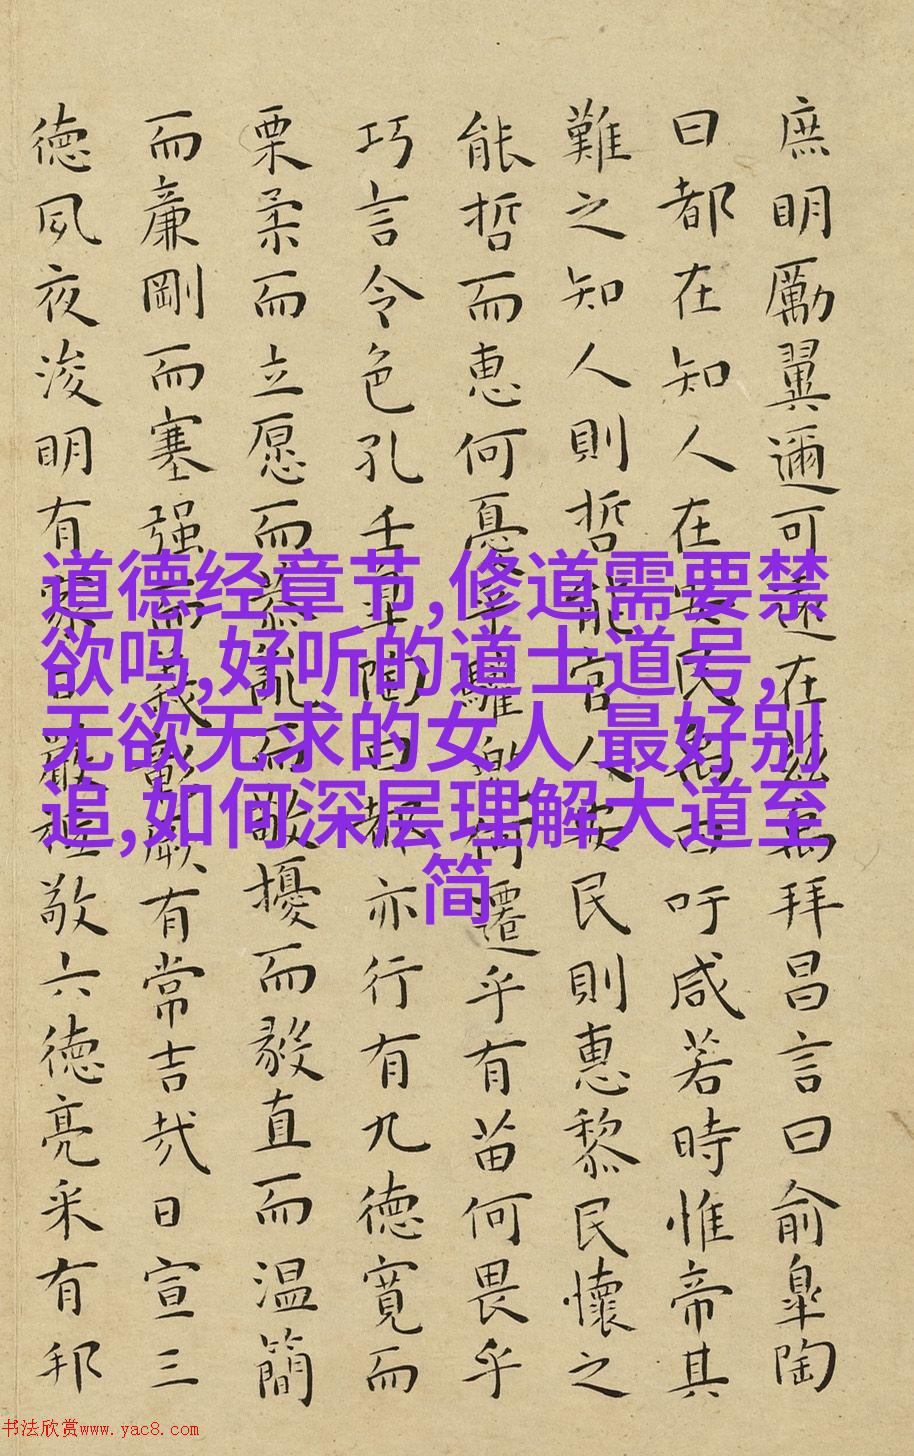 庶明勵翼邇可遠在茲禹拜昌言曰俞皐陶
曰都在知人在安民禹曰吁咸若時惟帝其
難之知人則哲能官人安民則惠黎民懷之
能哲而惠何憂乎驩兜何遷乎有苗何畏乎
巧言令色孔壬皐陶曰都亦行有九德寬而
栗柔而立愿而恭亂而敬擾而毅直而温簡
而廉剛而塞强而義彰厥有常吉哉日宣三
德夙夜浚明有家日嚴祗敬六德亮采有邦
道德经章节,修道需要禁
欲吗,好听的道士道号,
无欲无求的女人 最好别
追,如何深层理解大道至
简
书法欣赏www.yac8.com